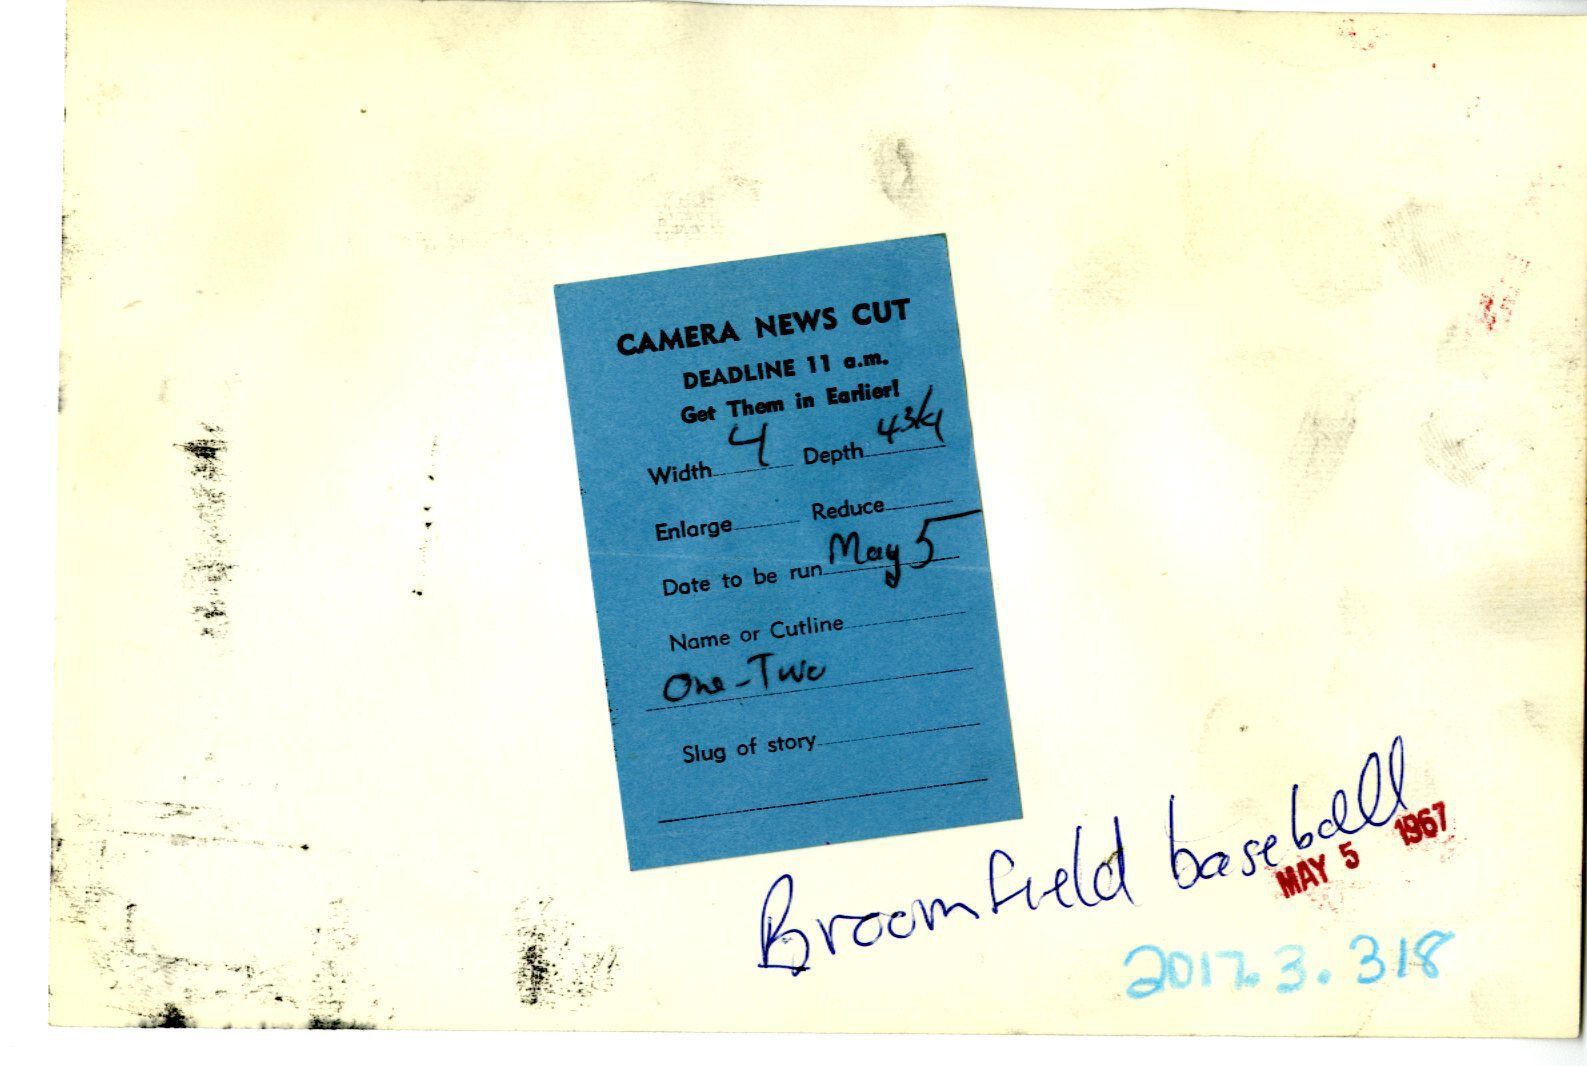 CAMERA NEWS CUT
DEADLINE 11 a.m.
Get Them in Earlier!
Width 4 Depth 4 3/4
Enlarge Reduce
Date to be run May 5
Name or Cutline
One-Two
Slug of story
Broomfield baseball
MAY 5 1967
2017.3.318